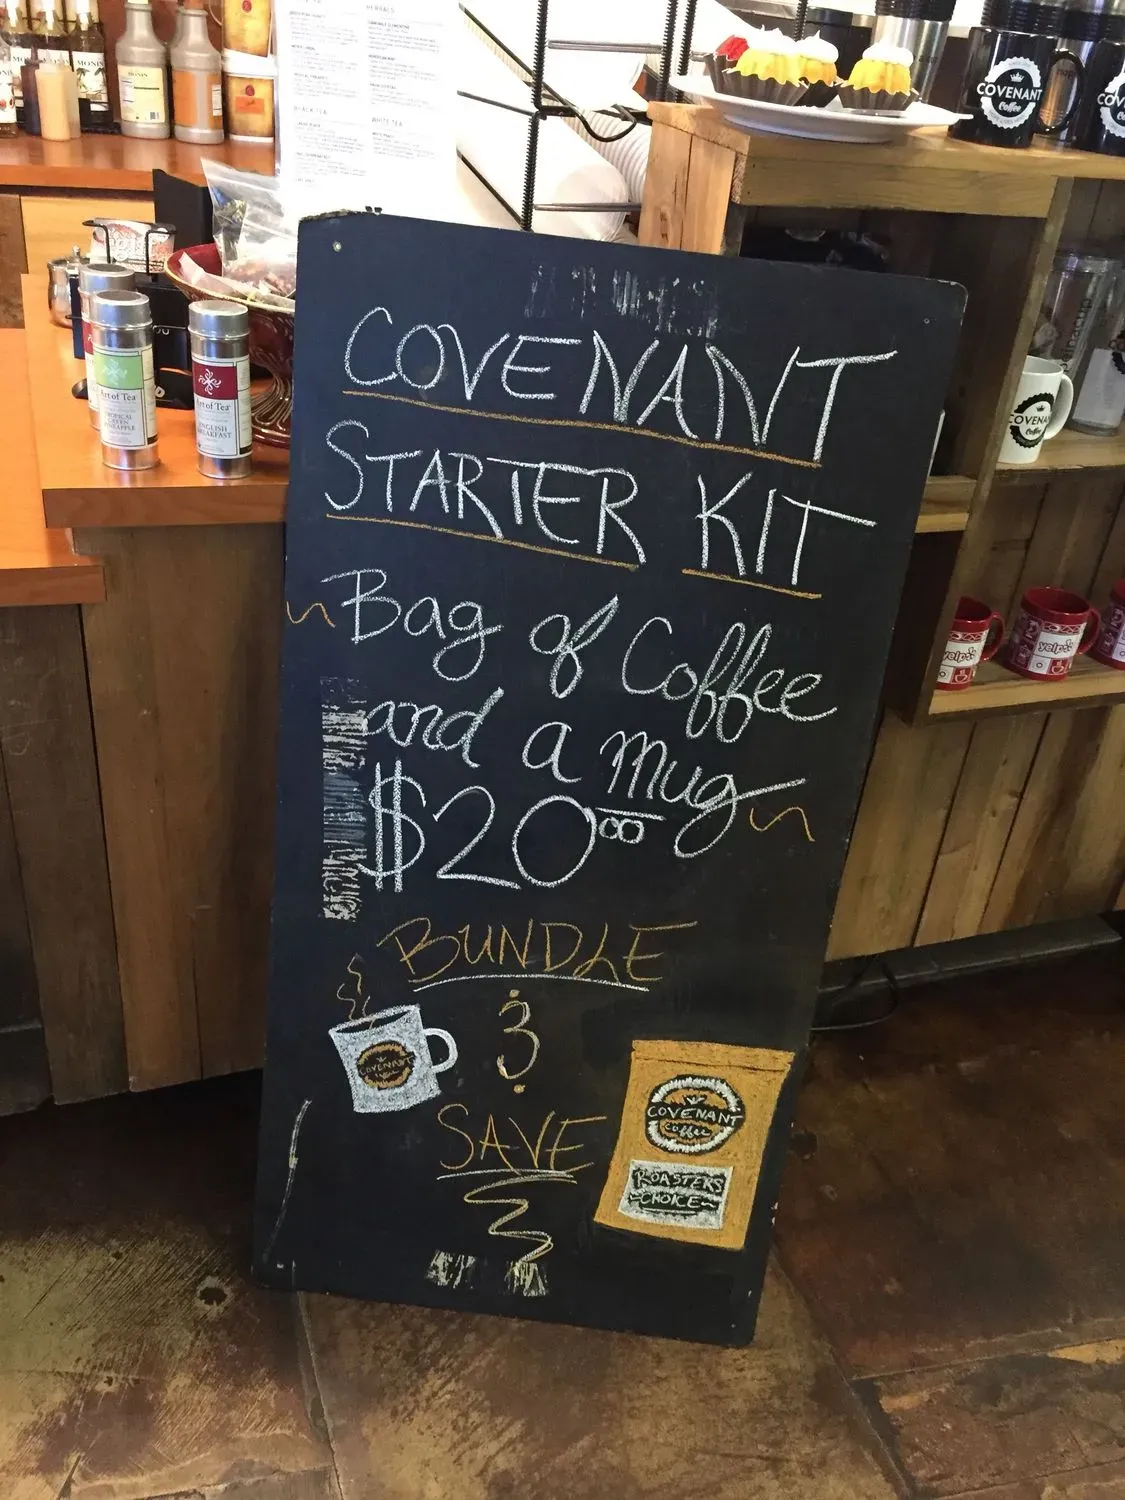 HERBALS
BLACK TEA
WHITE TEA
MONIN
COVENANT
Coffee
Art of Tea
TROPICAL
GREEN
PINEAPPLE
Art of Tea
ENGLISH
BREAKFAST
COVENANT
STARTER KIT
~Bag of Coffee
and a mug~
$20.00
BUNDLE
&
SAVE
COVENANT
COVENANT
Coffee
ROASTERS
~CHOICE~
COVENANT
Coffee
yelp
yelp